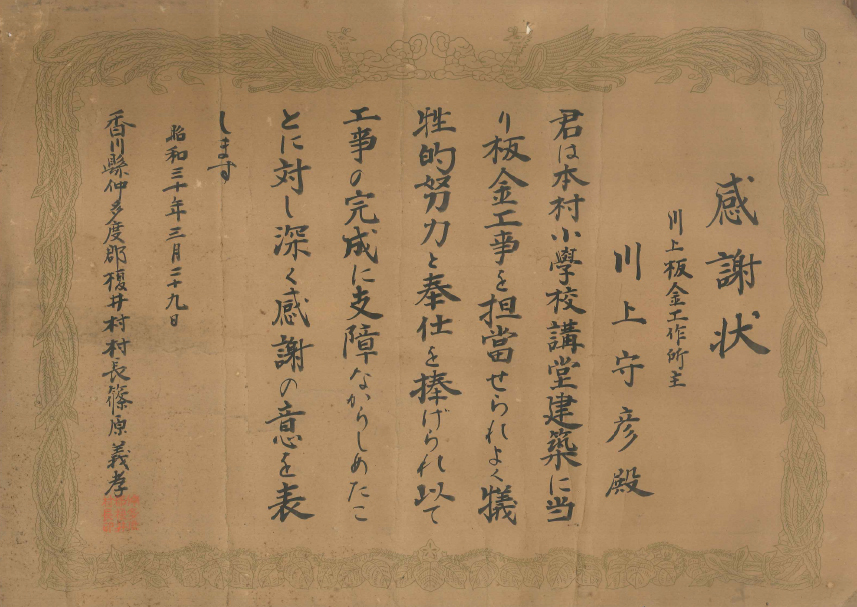 感謝状
川上板金工作所主
川上守彦殿
君は本村小學校講堂建築に当
り板金工事を担當せられよく犠
牲的努力と奉仕を捧げられ以て
工事の完成に支障なからしめたこ
とに対し深く感謝の意を表
します
昭和三十年三月二十九日
香川縣仲多度郡榎井村村長篠原義孝